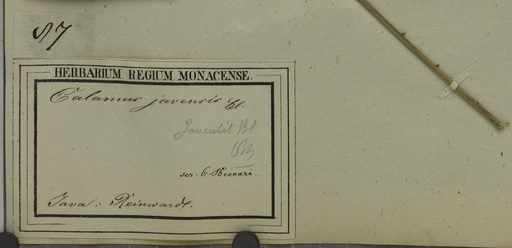 87
HERBARIUM REGIUM MONACENSE.
Calamus javensis Bl.
javensis Bl.
scr. O Beccari.
Java: Reinwardt.